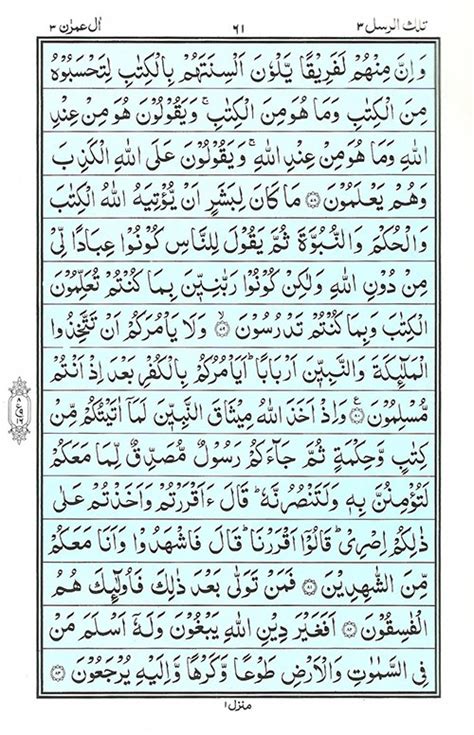 تلك الرسل ٣ ٦١ اٰل عمرٰن ٣
وَاِنَّ مِنْهُمْ لَفَرِيْقًا يَّلْوٗنَ اَلْسِنَتَهُمْ بِالْكِتٰبِ لِتَحْسَبُوْهُ
مِنَ الْكِتٰبِ وَمَا هُوَ مِنَ الْكِتٰبِ ۚ وَيَقُوْلُوْنَ هُوَ مِنْ عِنْدِ
اللّٰهِ وَمَا هُوَ مِنْ عِنْدِ اللّٰهِ ۚ وَيَقُوْلُوْنَ عَلَى اللّٰهِ الْكَذِبَ
وَهُمْ يَعْلَمُوْنَ ۝٧٨ مَا كَانَ لِبَشَرٍ اَنْ يُّؤْتِيَهُ اللّٰهُ الْكِتٰبَ
وَالْحُكْمَ وَالنُّبُوَّةَ ثُمَّ يَقُوْلَ لِلنَّاسِ كُوْنُوْا عِبَادًا لِّيْ
مِنْ دُوْنِ اللّٰهِ وَلٰكِنْ كُوْنُوْا رَبّٰنِيّٖنَ بِمَا كُنْتُمْ تُعَلِّمُوْنَ
الْكِتٰبَ وَبِمَا كُنْتُمْ تَدْرُسُوْنَ ۝٧٩ۙ وَلَا يَاْمُرَكُمْ اَنْ تَتَّخِذُوا
الْمَلٰٓئِكَةَ وَالنَّبِيّٖنَ اَرْبَابًا ؕ اَيَاْمُرُكُمْ بِالْكُفْرِ بَعْدَ اِذْ اَنْتُمْ
مُّسْلِمُوْنَ ۝٨٠ۧ وَاِذْ اَخَذَ اللّٰهُ مِيْثَاقَ النَّبِيّٖنَ لَمَاۤ اٰتَيْتُكُمْ مِّنْ
كِتٰبٍ وَّحِكْمَةٍ ثُمَّ جَآءَكُمْ رَسُوْلٌ مُّصَدِّقٌ لِّمَا مَعَكُمْ
لَتُؤْمِنُنَّ بِهٖ وَلَتَنْصُرُنَّهٗ ؕ قَالَ ءَاَقْرَرْتُمْ وَاَخَذْتُمْ عَلٰى
ذٰلِكُمْ اِصْرِيْ ؕ قَالُوْۤا اَقْرَرْنَا ؕ قَالَ فَاشْهَدُوْا وَاَنَا مَعَكُمْ
مِّنَ الشّٰهِدِيْنَ ۝٨١ فَمَنْ تَوَلّٰى بَعْدَ ذٰلِكَ فَاُولٰٓئِكَ هُمُ
الْفٰسِقُوْنَ ۝٨٢ اَفَغَيْرَ دِيْنِ اللّٰهِ يَبْغُوْنَ وَلَهٗۤ اَسْلَمَ مَنْ
فِي السَّمٰوٰتِ وَالْاَرْضِ طَوْعًا وَّكَرْهًا وَّاِلَيْهِ يُرْجَعُوْنَ ۝٨٣
منزل١